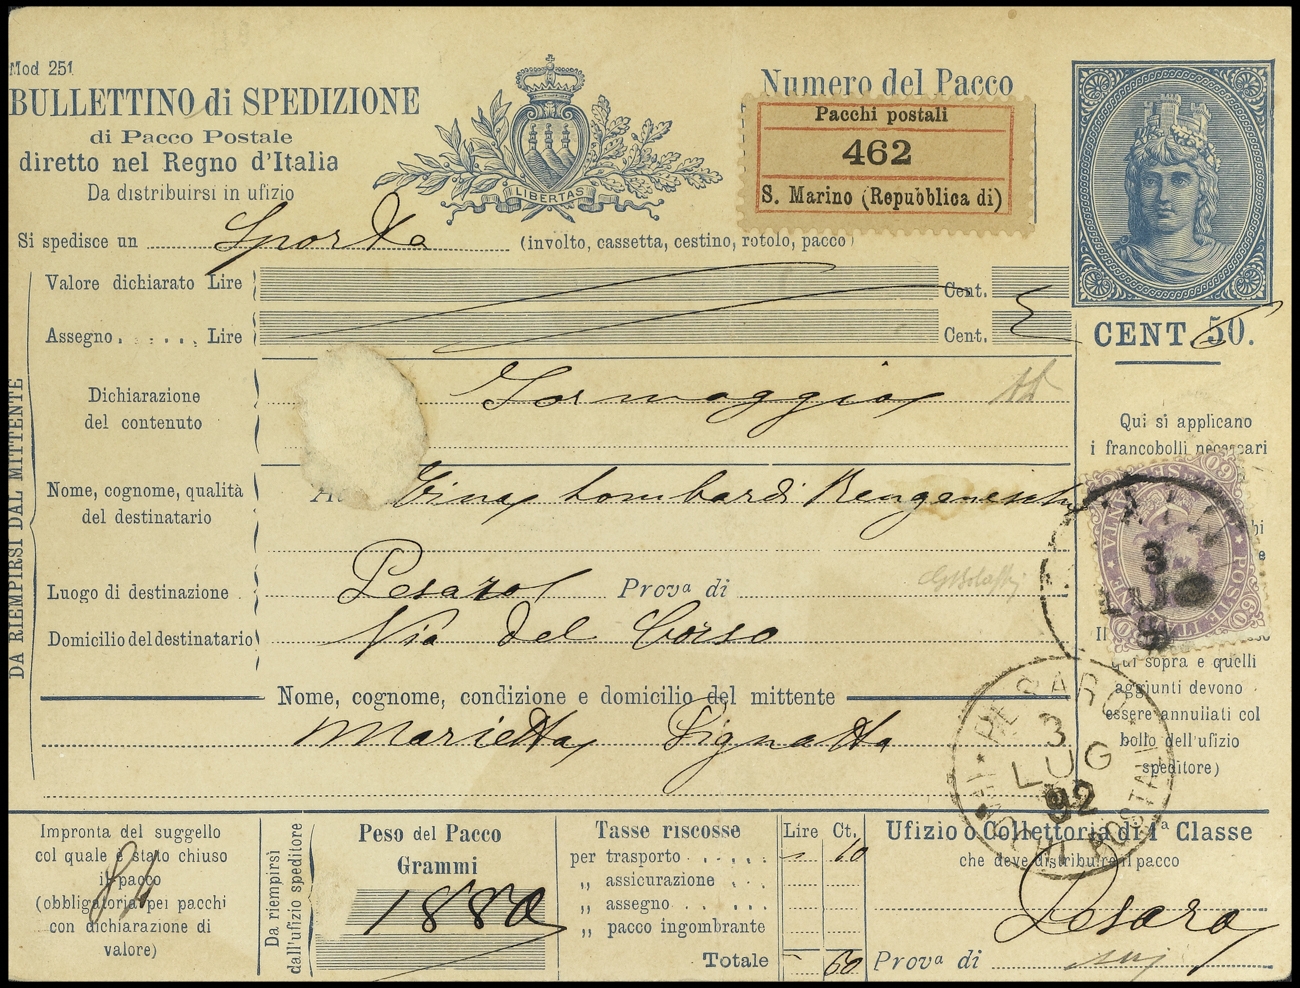 Mod 251.
BULLETTINO di SPEDIZIONE
di Pacco Postale
diretto nel Regno d'Italia
Da distribuirsi in ufizio
LIBERTAS
Numero del Pacco
Pacchi postali
462
S. Marino (Repubblica di)
Si spedisce un Sporta (involto, cassetta, cestino, rotolo, pacco)
Valore dichiarato Lire Cent.
Assegno Lire Cent.
CENT. 50.
DA RIEMPIRSI DAL MITTENTE
Dichiarazione
del contenuto
Formaggio
Qui si applicano
i francobolli necessari
Nome, cognome, qualità
del destinatario
Lombardi
POSTE ITE
60
Luogo di destinazione Pesaro Prov.ª di
Domicilio del destinatario Via del Corso
3
qui sopra e quelli
aggiunti devono
essere annullati col
bollo dell'ufizio
speditore)
Nome, cognome, condizione e domicilio del mittente
Marietta Pignatta
PESARO
3
LUG
92
PACCHI POSTALI
Impronta del suggello
col quale è stato chiuso
il pacco
(obbligatoria pei pacchi
con dichiarazione di
valore)
84
Da riempirsi
dall'ufizio speditore
Peso del Pacco
Grammi
1880
Tasse riscosse Lire Ct.
per trasporto
„ assicurazione
„ assegno
„ pacco ingombrante
Totale 60
Ufizio o Collettoria di 1ª Classe
che deve distribuire il pacco
Pesaro
Prov.ª di